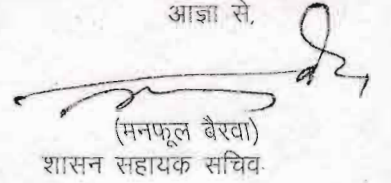 आज्ञा से,
(मनफूल बैरवा)
शासन सहायक सचिव